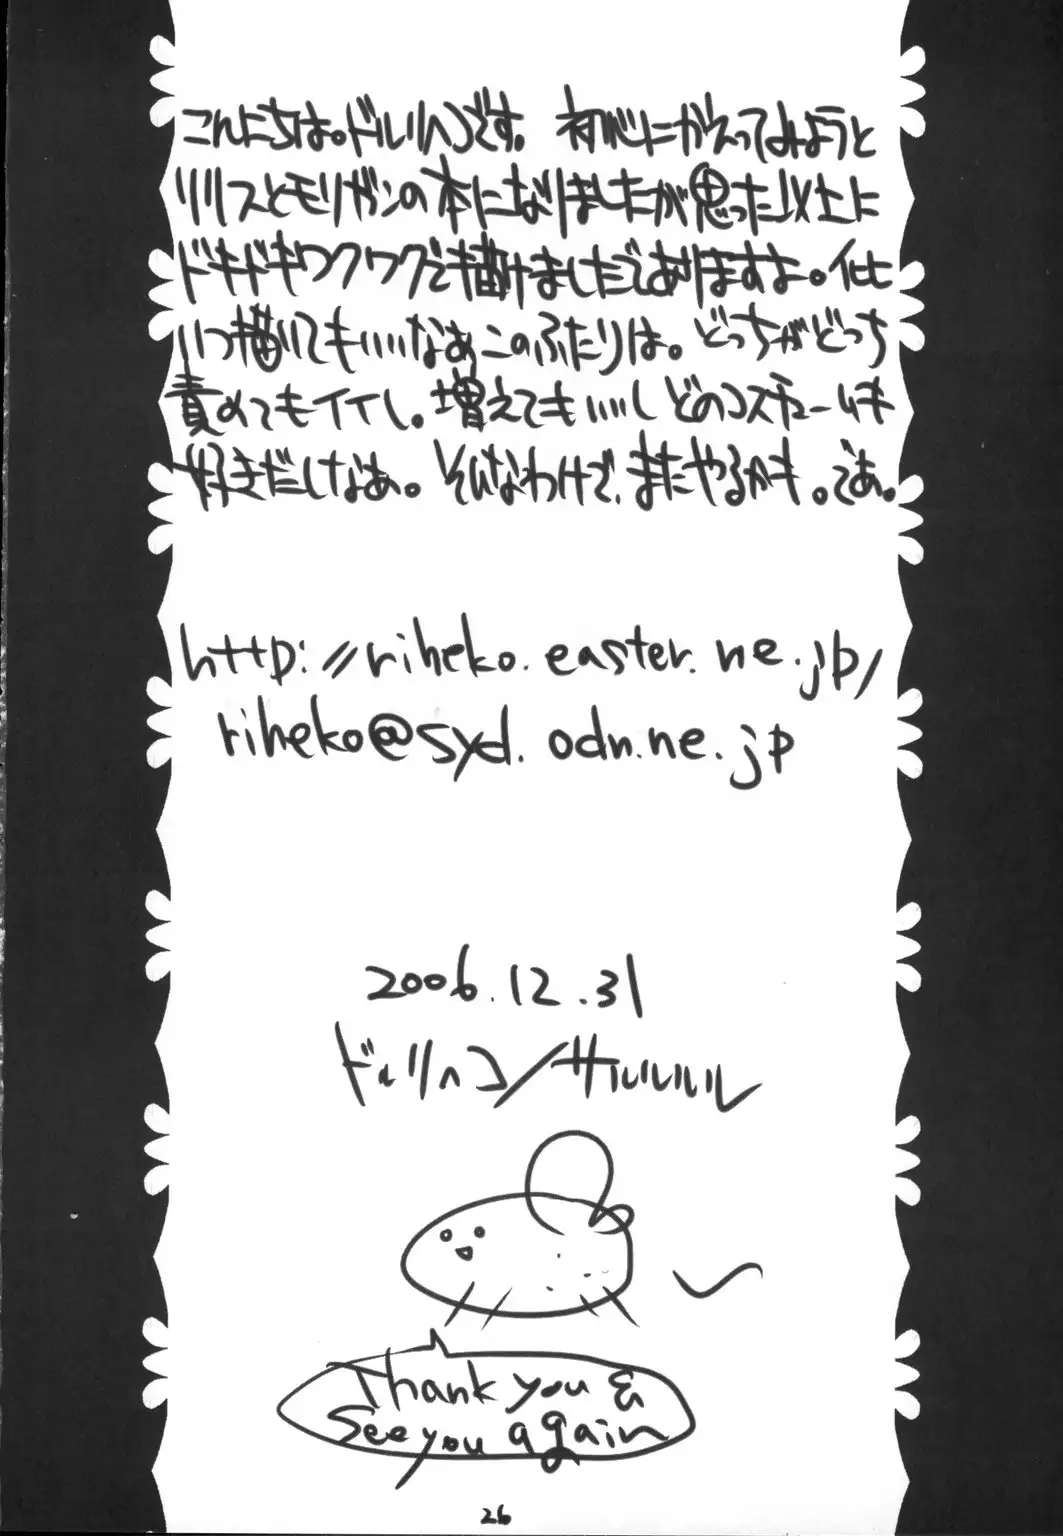 こんにちは。ドルリヘコです。初心にかえってみようと
リリスとモリガンの本になりましたが思った以上に
ドキドキワクワクで描けましたでありますよ。
いつ描いてもいいなあこのふたりは。どっちがどっち
責めてもイイし。増えてもいいしどのコスチュームも
好きだしなあ。そんなわけで、またやるかも。であ。
http://riheko.easter.ne.jp/
riheko@syd.odn.ne.jp
2006.12.31
ドルリヘコ/サルルルル
Thank you &
See you again
26